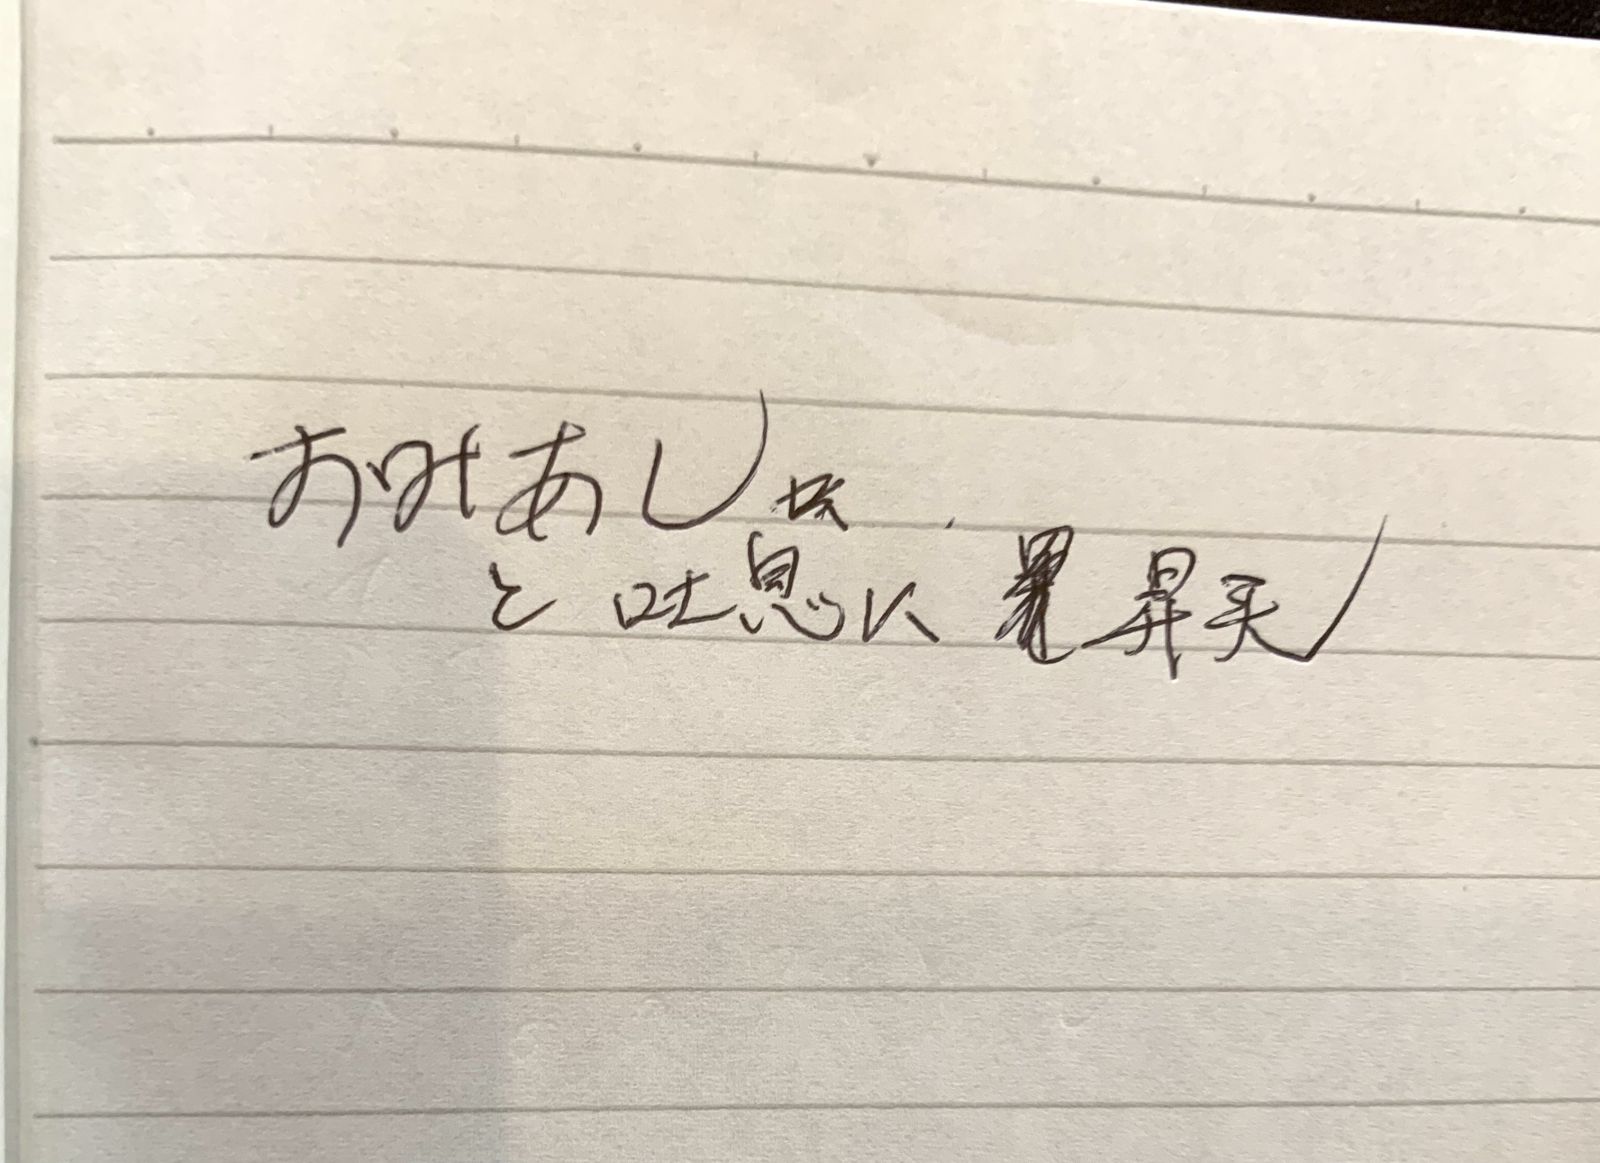 おみあし
と 吐息に 昇天